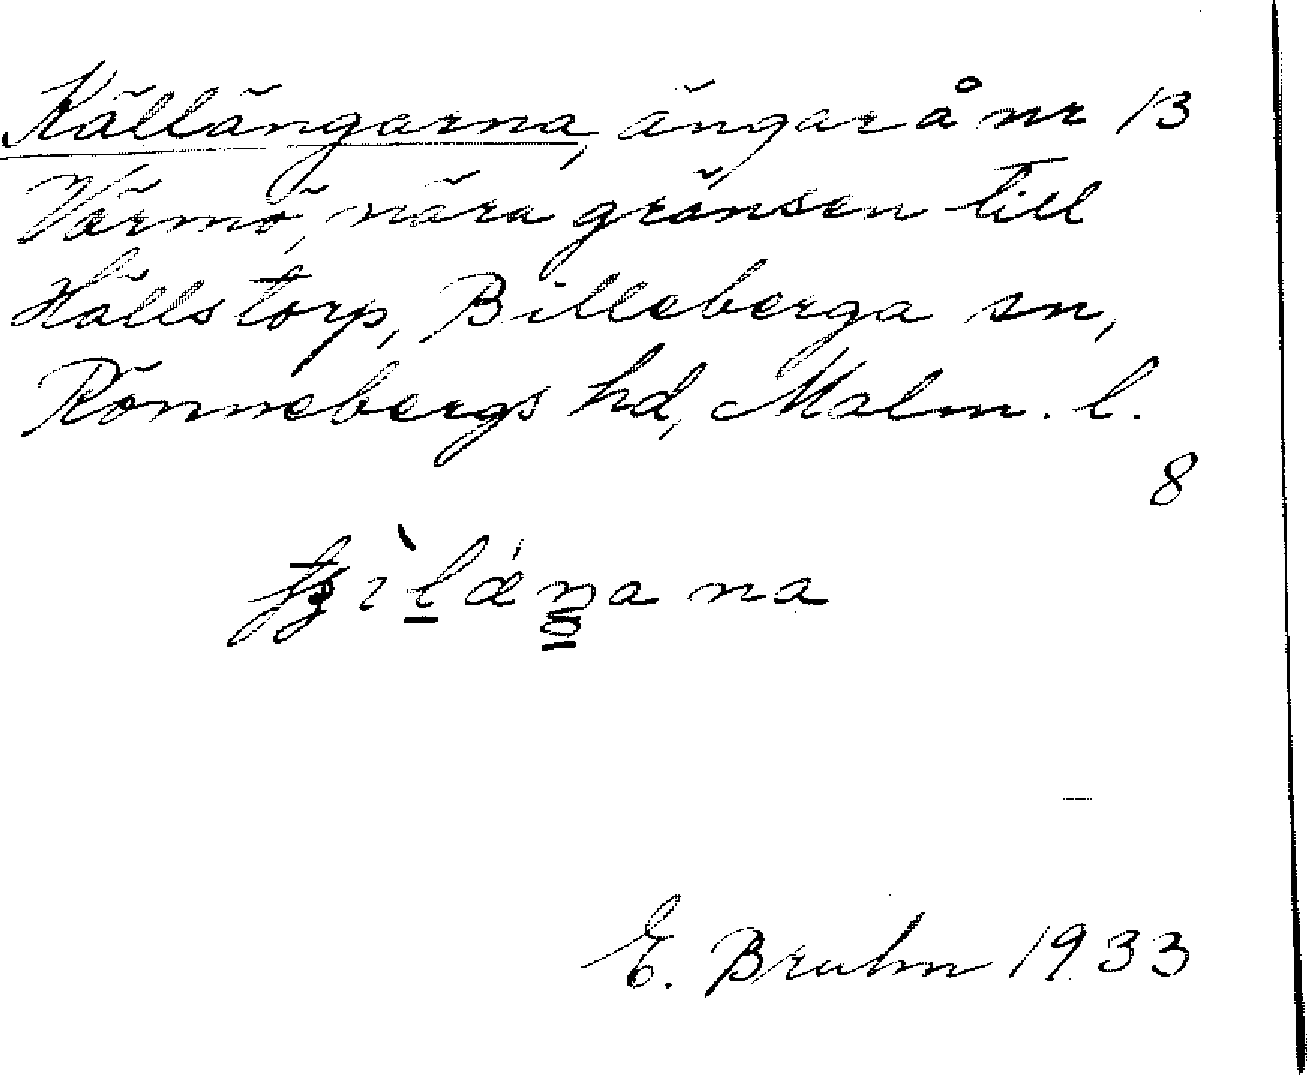 Källängarna, ängar å nr 13
Värmö, nära gränsen till
Hällstorp, Billeberga sn,
Rönnebergs hd, Malm. l.
8
E. Bruhn 1933